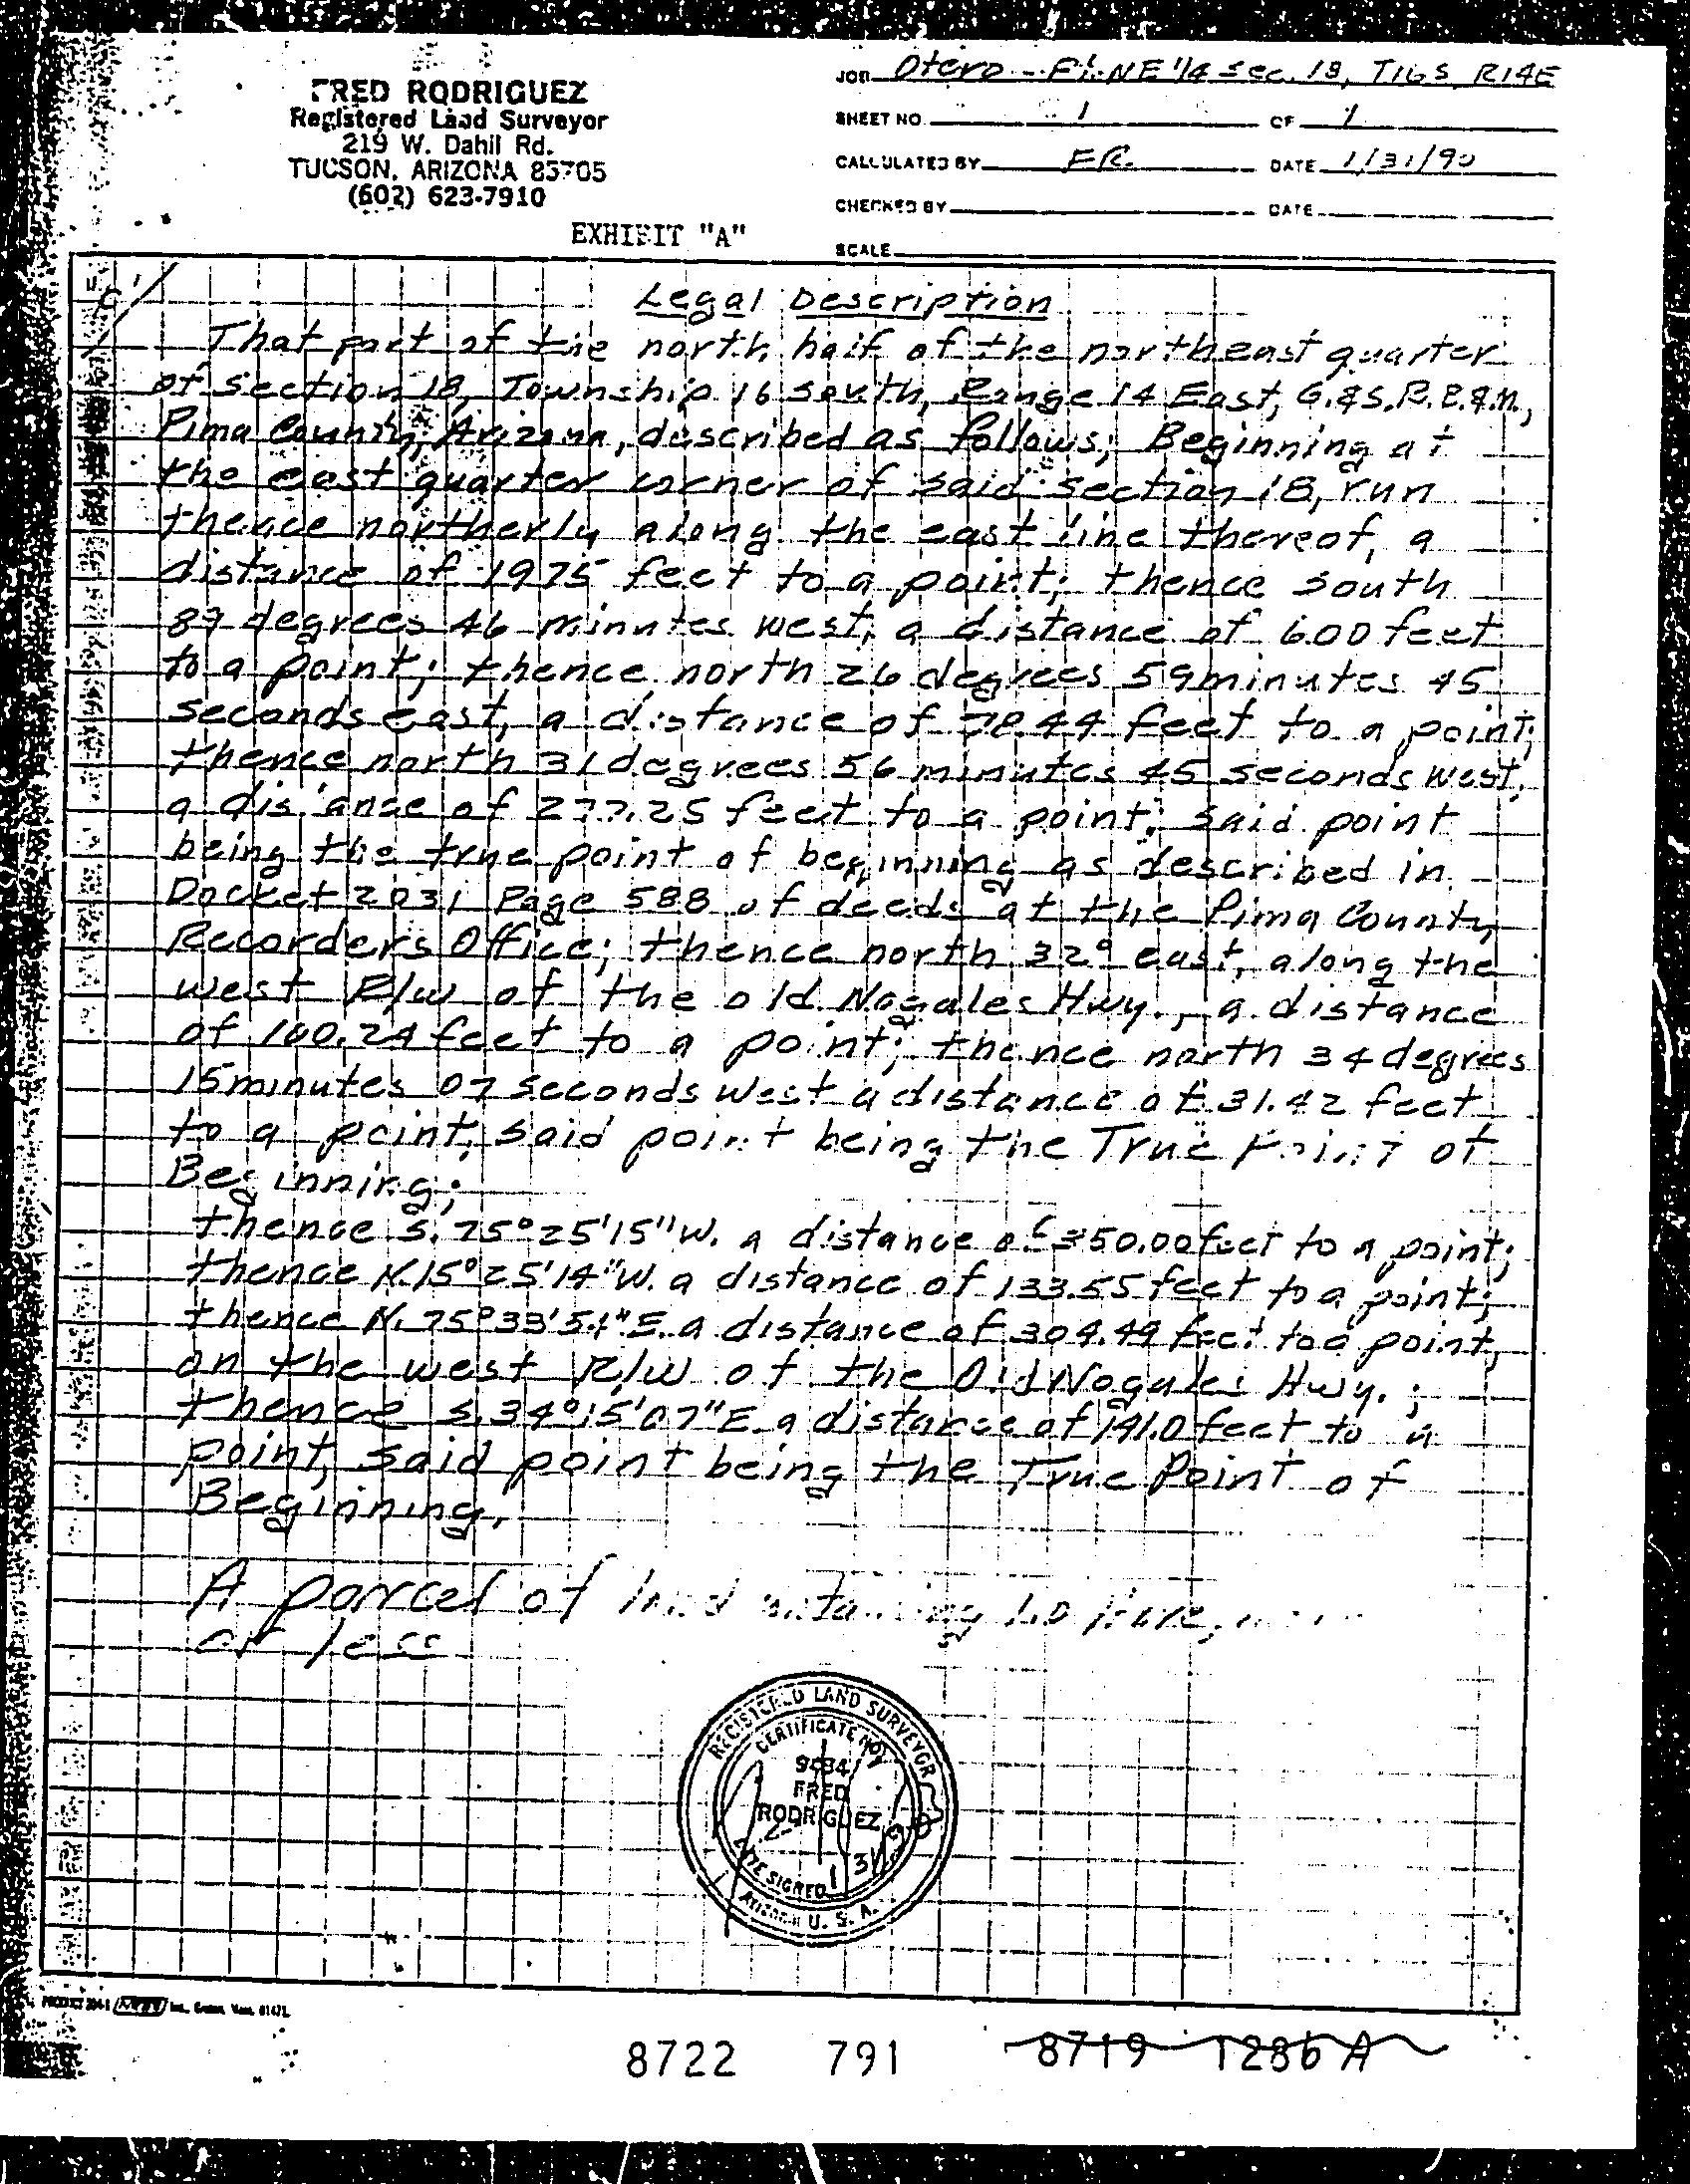 FRED RODRIGUEZ
Registered Land Surveyor
219 W. Dahil Rd.
TUCSON, ARIZONA 85705
(602) 623-7910
JOB Otero - NE 1/4 Sec. 18, T16S R14E
SHEET NO. 1 OF 1
CALCULATED BY F.R. DATE 1/31/90
CHECKED BY DATE
SCALE
EXHIBIT "A"
Legal Description
That part of the north half of the northeast quarter
of Section 18, Township 16 South, Range 14 East, G.&S.R.B.&M.,
Pima County, Arizona, described as follows; Beginning at
the east quarter corner of said section 18, run
thence northerly along the east line thereof, a
distance of 1975 feet to a point; thence south
degrees 46 minutes west, a distance of 6.00 feet
to a point; thence north 26 degrees 59 minutes 45
seconds east, a distance of feet to a point;
thence north 31 degrees 56 minutes 45 seconds west,
a distance of 277.25 feet to a point; said point
being the true point of beginning as described in
Docket 2031 Page 588 of deeds at the Pima County
Recorders Office; thence north 32° east, along the
west R/W of the old Nogales Hwy., a distance
of 100.24 feet to a point; thence north 34 degrees
15 minutes 07 seconds West a distance of 31.42 feet
to a point, said point being the True Point of
Beginning;
thence S. 75°25'15"W. a distance of 350.00 feet to a point;
thence N.15°25'14"W. a distance of 133.55 feet to a point;
thence N. 75°33'54"E. a distance of 304.49 feet to a point,
on the west R/W of the Old Nogales Hwy.;
thence S.34°15'07"E a distance of 141.0 feet to a
point, said point being the True Point of
Beginning.
A parcel of land containing 1.0 Acre,
or less
REGISTERED LAND SURVEYOR
CERTIFICATE NO.
FRED
RODRIGUEZ
DATE SIGNED 1 31
ARIZONA U. S. A.
8722 791 8719 1286 A